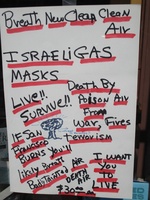 Breath New Clear Clean
Air
ISRAELI GAS
MASKS
LIVE!!
SURVIVE!!
Death By
Poison Air
From
War, Fires
Terrorism
IF SAN
Francisco
BURNS YOU'll
likly Breath
AIR
DEATH
AIR
$30.00
I WANT
You
To
LIVE